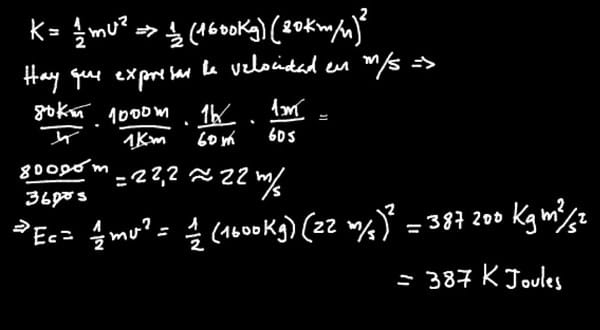 K = 1/2 mv² => 1/2 (1600Kg) (80Km/h)²
Hay que expresar la velocidad en m/s =>
80Km/h · 1000m/1Km · 1h/60m · 1m/60s =
80000m/3600s = 22,2 ≈ 22 m/s
=> Ec = 1/2 mv² = 1/2 (1600Kg) (22 m/s)² = 387 200 Kg m²/s²
= 387 K Joules